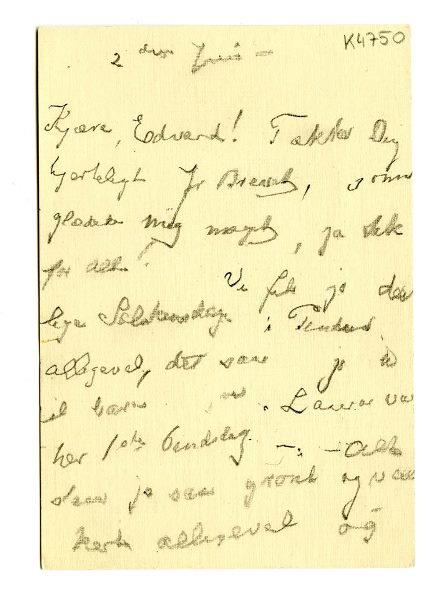 K4750
2 den Juni —
Kjære, Edvard! Takker Dig
hjerteligt for Brevet, som
glædede mig meget, ja tak
for alt! Vi fik jo dei
lige Solskinsdage i Pintsen
alligevel, det var jo
Laura var
her 1ste Pindsdag —. — Alt
var jo saa grønt og vak
kert alligevel og